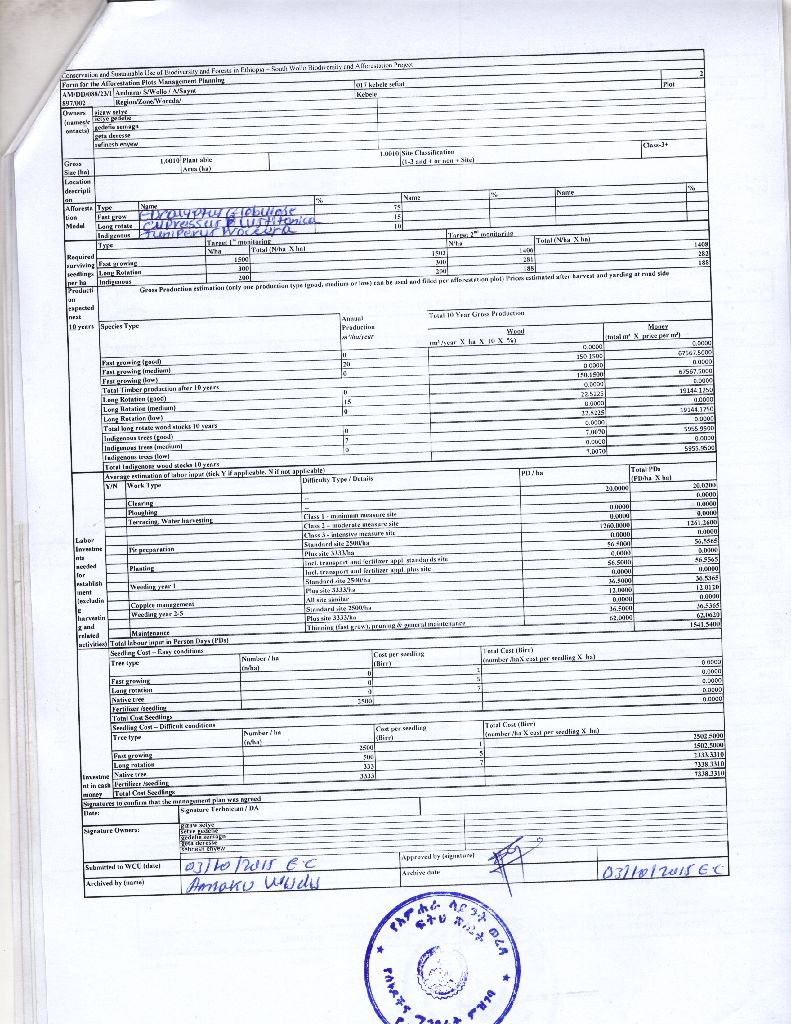 Conservation and Sustainable Use of Biodiversity and Forests in Ethiopia – South Wollo Biodiversity and Afforestation Project
Form for the Afforestation Plots Management Planning
017 kebele sefint
2
AM/DD/088/23/1 Amhara/ S/Wollo / A/Saynt
Kebele
Plot
897/002 Region/Zone/Woreda/
Owners (names/contacts)
setye gedefie
gedefie semaga
geta deresse
Gross Size (ha)
1.0010 Plant able Area (ha)
1.0010 Site Classification (1-3 and + or non + Site)
Class-3+
Location description
Afforestation Model
Type Name % Name % Name %
Fast grow 75
Long rotate 15
Indigenous 10
Required surviving seedlings per ha
Type Target 1st monitoring Target 2nd monitoring
N/ha Total (N/ha X ha) N/ha Total (N/ha X ha)
Fast growing 1500 1502 1406 1408
Long Rotation 300 300 281 282
Indigenous 200 200 188 188
Production expected next 10 years
Gross Production estimation (only one production type (good, medium or low) can be used and filled per afforestation plot) Prices estimated after harvest and yarding at road side
Species Type
Annual Production m³/ha/year
Total 10 Year Gross Production
Wood (m³/year X ha X 10 X %)
Money (total m³ X price per m³)
Fast growing (good) 0 0.0000 0.0000
Fast growing (medium) 20 150.1500 67567.5000
Fast growing (low) 0 0.0000 0.0000
Total Timber production after 10 years 150.1500 67567.5000
Long Rotation (good) 0 0.0000 0.0000
Long Rotation (medium) 15 22.5225 19144.1250
Long Rotation (low) 0 0.0000 0.0000
Total long rotate wood stocks 10 years 22.5225 19144.1250
Indigenous trees (good) 0 0.0000 0.0000
Indigenous trees (medium) 7 7.0070 5955.9500
Indigenous trees (low) 0 0.0000 0.0000
Total Indigenous wood stocks 10 years 7.0070 5955.9500
Labor Investments needed for establishment (excluding harvesting and related activities)
Average estimation of labor input (tick Y if applicable, N if not applicable)
Y/N Work Type Difficulty Type / Details PD / ha Total PDs (PD/ha X ha)
Clearing -- 20.0000 20.0200
Ploughing -- 0.0000
Terracing, Water harvesting Class 1 - minimum measure site 0.0000 0.0000
Class 2 – moderate measure site 0.0000 0.0000
Class 3 - intensive measure site 1260.0000 1261.2600
Pit preparation Standard site 2500/ha 0.0000 0.0000
Plus site 3333/ha 56.5000 56.5565
Planting Incl. transport and fertilizer appl. standards site 0.0000 0.0000
Incl. transport and fertilizer appl. plus site 56.5000 56.5565
Weeding year 1 Standard site 2500/ha 0.0000 0.0000
Plus site 3333/ha 36.5000 36.5365
Coppice management All site similar 12.0000 12.0120
Weeding year 2-5 Standard site 2500/ha 0.0000 0.0000
Plus site 3333/ha 36.5000 36.5365
Maintenance Thinning (fast grow), pruning & general maintenance 62.0000 62.0620
Total labour input in Person Days (PDs) 1541.5400
Investment in cash money
Seedling Cost – Easy conditions
Tree type Number / ha (n/ha) Cost per seedling (Birr) Total Cost (Birr) (number /haX cost per seedling X ha)
Fast growing 0 1 0.0000
Long rotation 0 5 0.0000
Native tree 0 7 0.0000
Fertilizer /seedling 2500 0.0000
Total Cost Seedlings 0.0000
Seedling Cost – Difficult conditions
Tree type Number / ha (n/ha) Cost per seedling (Birr) Total Cost (Birr) (number /ha X cost per seedling X ha)
Fast growing 2500 1 2502.5000
Long rotation 500 5 2502.5000
Native tree 333 7 2333.3310
Fertilizer /seedling 3333 7338.3310
Total Cost Seedlings 7338.3310
Signatures to confirm that the management plan was agreed
Date: Signature Technician / DA
Signature Owners:
setye gedefie
gedefie semaga
geta deresse
Submitted to WCU (date) 03/10/2015 E.C Approved by (signature)
Archived by (name) Archive date 03/10/2015 E.C